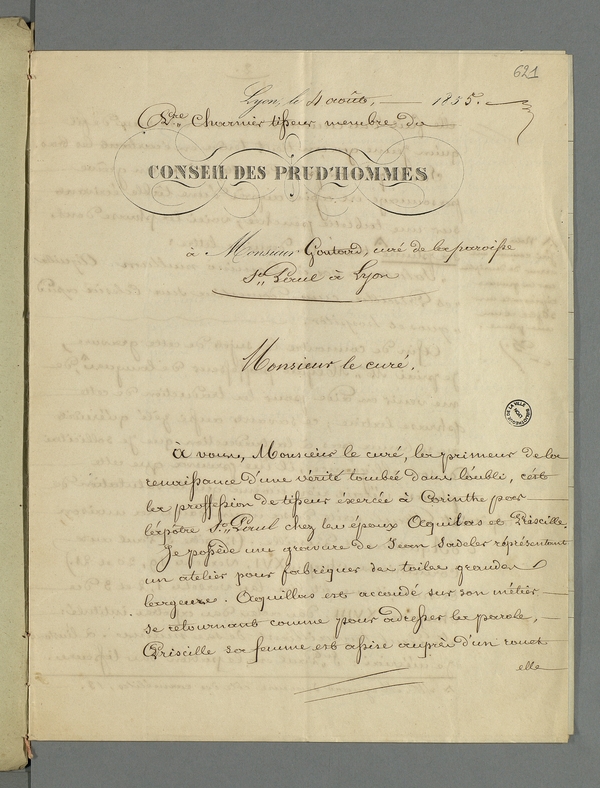 621
Lyon, le 4 août, 1855.
Pre. Charnier tisseur membre du
CONSEIL DES PRUD'HOMMES
à Monsieur Goutard, curé de la paroisse
St. Paul à Lyon
Monsieur le curé,
à vous, Monsieur le curé, la primeur de la
renaissance d'une vérité tombée dans l'oubli, c'est
la proffession de tisseur éxercée à Corinthe par
l'épôtre St. Paul chez les époux Acquilas et Priscille.
Je possède une gravure de Jean Sadeler réprésentant
un atelier pour fabriquer des toiles grandes
largeurs. Acquillas est accoudé sur son métier
se retournant comme pour adresser la parole,
Priscille sa femme est assise auprès d'un rouet
elle
BIBLIOTHEQUE DE LA VILLE
LYON